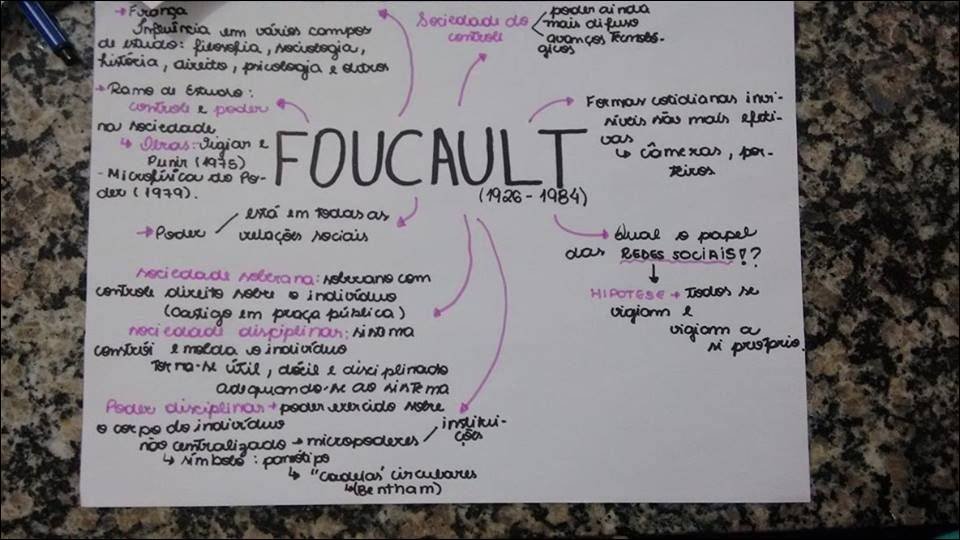 → França
Influência em vários campos
de estudo: filosofia, sociologia,
história, direito, psicologia e outros
Sociedade do
controle
poder ainda
mais difuso
avanços tecnoló-
gicos
→ Ramo de Estudo:
controle e poder
na sociedade
↳ Obras: Vigiar e
Punir (1975)
- Microfísica do Po-
der (1979).
FOUCAULT
(1926 - 1984)
Formas cotidianas invi-
síveis são mais efeti-
vas
↳ câmeras, por-
teiros
→ Poder
está em todas as
relações sociais
Qual o papel
das REDES SOCIAIS!?
↓
HIPOTESE → Todos se
vigiam e
vigiam a
si próprio.
sociedade soberana: soberano com
controle direito sobre o indivíduo
(castigo em praça pública)
sociedade disciplinar: sistema
constrói e molda o indivíduo
torna-se útil, dócil e disciplinado
adequando-se ao sistema
Poder disciplinar → poder exercido sobre
o corpo do indivíduo
não centralizado → micropoderes / institui-
ções
↳ símbolo: panótipo
↳ "cadeias" circulares
↳ (Bentham)